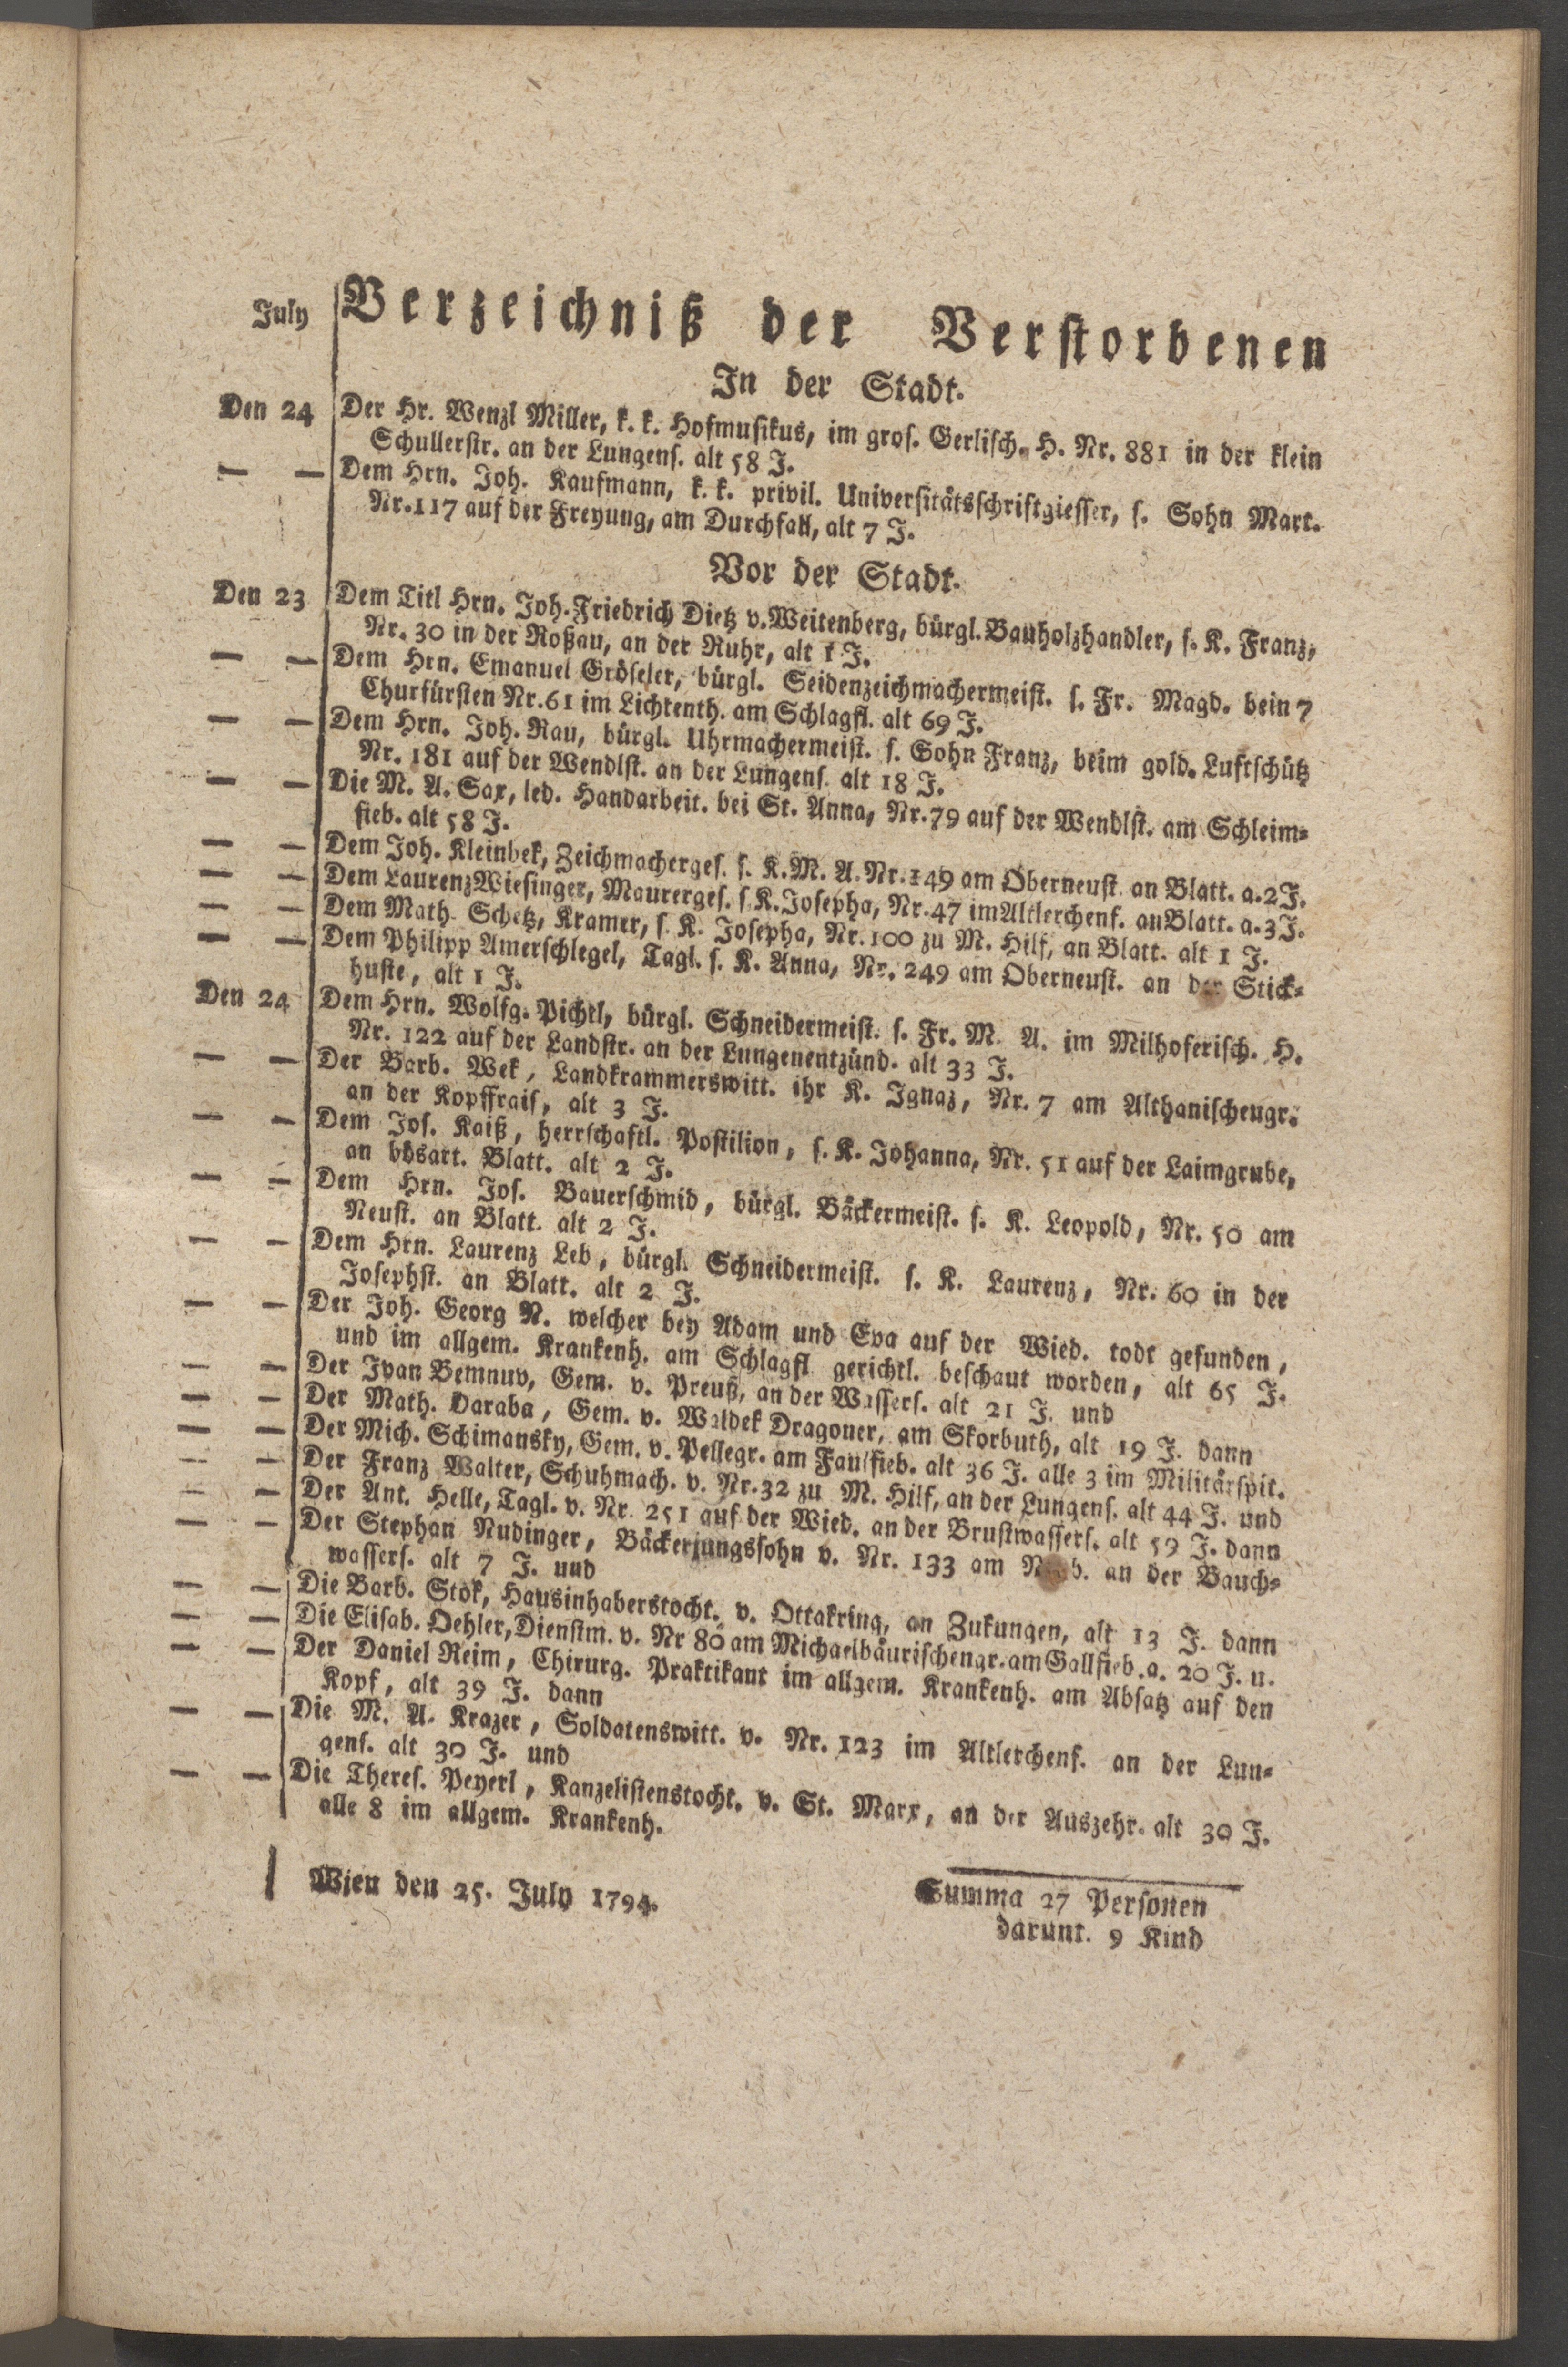 July Verzeichniß der Verstorbenen
In der Stadt.
Den 24 Der Hr. Wenzl Miller, k. k. Hofmusikus, im gros. Gerlisch. H. Nr. 881 in der klein
Schullerstr. an der Lungens. alt 58 J.
— — Dem Hrn. Joh. Kaufmann, k. k. privil. Universitätsschriftgiesser, s. Sohn Mart.
Nr. 117 auf der Freyung, am Durchfall, alt 7 J.
Vor der Stadt.
Den 23 Dem Titl Hrn. Joh. Friedrich Dietz v. Weitenberg, bürgl. Bauholzhandler, s. K. Franz,
Nr. 30 in der Roßau, an der Ruhr, alt 1 J.
— — Dem Hrn. Emanuel Gröseler, bürgl. Seidenzeichmachermeist. s. Fr. Magd. bein 7
Churfürsten Nr. 61 im Lichtenth. am Schlagfl. alt 69 J.
— — Dem Hrn. Joh. Rau, bürgl. Uhrmachermeist. s. Sohn Franz, beim gold. Luftschütz
Nr. 181 auf der Wendlst. an der Lungens. alt 18 J.
— — Die M. A. Sax, led. Handarbeit. bei St. Anna, Nr. 79 auf der Wendlst. am Schleim-
fieb. alt 58 J.
— — Dem Joh. Kleinbek, Zeichmacherges. s. K. M. A. Nr. 149 am Oberneust. an Blatt. a. 2 J.
— — Dem Laurenz Wiesinger, Maurerges. s K. Josepha, Nr. 47 im Altlerchenf. an Blatt. a. 3 J.
— — Dem Math. Schetz, Kramer, s. K. Josepha, Nr. 100 zu M. Hilf, an Blatt. alt 1 J.
— — Dem Philipp Amerschlegel, Tagl. s. K. Anna, Nr. 249 am Oberneust. an der Stick-
huste, alt 1 J.
Den 24 Dem Hrn. Wolfg. Pichtl, bürgl. Schneidermeist. s. Fr. M. A. im Milhoferisch. H.
Nr. 122 auf der Landstr. an der Lungenentzünd. alt 33 J.
— — Der Barb. Wek, Landkrammerswitt. ihr K. Ignaz, Nr. 7 am Althanischengr.
an der Kopffrais, alt 3 J.
— — Dem Jos. Kaiß, herrschaftl. Postilion, s. K. Johanna, Nr. 51 auf der Laimgrube,
an bösart. Blatt. alt 2 J.
— — Dem Hrn. Jos. Bauerschmid, bürgl. Bäckermeist. s. K. Leopold, Nr. 50 am
Neust. an Blatt. alt 2 J.
— — Dem Hrn. Laurenz Leb, bürgl. Schneidermeist. s. K. Laurenz, Nr. 60 in der
Josephst. an Blatt. alt 2 J.
— — Der Joh. Georg N. welcher bey Adam und Eva auf der Wied. todt gefunden,
und im allgem. Krankenh. am Schlagfl gerichtl. beschaut worden, alt 65 J.
— — Der Ivan Bemnuv, Gem. v. Preuß, an der Wassers. alt 21 J. und
— — Der Math. Daraba, Gem. v. Waldek Dragoner, am Skorbuth, alt 19 J. dann
— — Der Mich. Schimansky, Gem. v. Pellegr. am Faulfieb. alt 36 J. alle 3 im Militärspit.
— — Der Franz Walter, Schuhmach. v. Nr. 32 zu M. Hilf, an der Lungens. alt 44 J. und
— — Der Ant. Helle, Tagl. v. Nr. 251 auf der Wied. an der Brustwassers. alt 59 J. dann
— — Der Stephan Nudinger, Bäckerjungssohn v. Nr. 133 am an der Bauch-
wassers. alt 7 J. und
— — Die Barb. Stök, Hausinhaberstocht. v. Ottakring, an Zukungen, alt 13 J. dann
— — Die Elisab. Oehler, Dienstm. v. Nr 80 am Michaelbäurischengr. am Gallfieb. a. 20 J. u.
— — Der Daniel Reim, Chirurg. Praktikant im allgem. Krankenh. am Absatz auf den
Kopf, alt 39 J. dann
— — Die M. A. Krazer, Soldatenswitt. v. Nr. 123 im Altlerchenf. an der Lun-
gens. alt 30 J. und
— — Die Theres. Peyerl, Kanzelistenstocht. v. St. Marx, an der Auszehr. alt 30 J.
alle 8 im allgem. Krankenh.
Wien den 25. July 1794.
Summa 27 Personen
darunt. 9 Kind